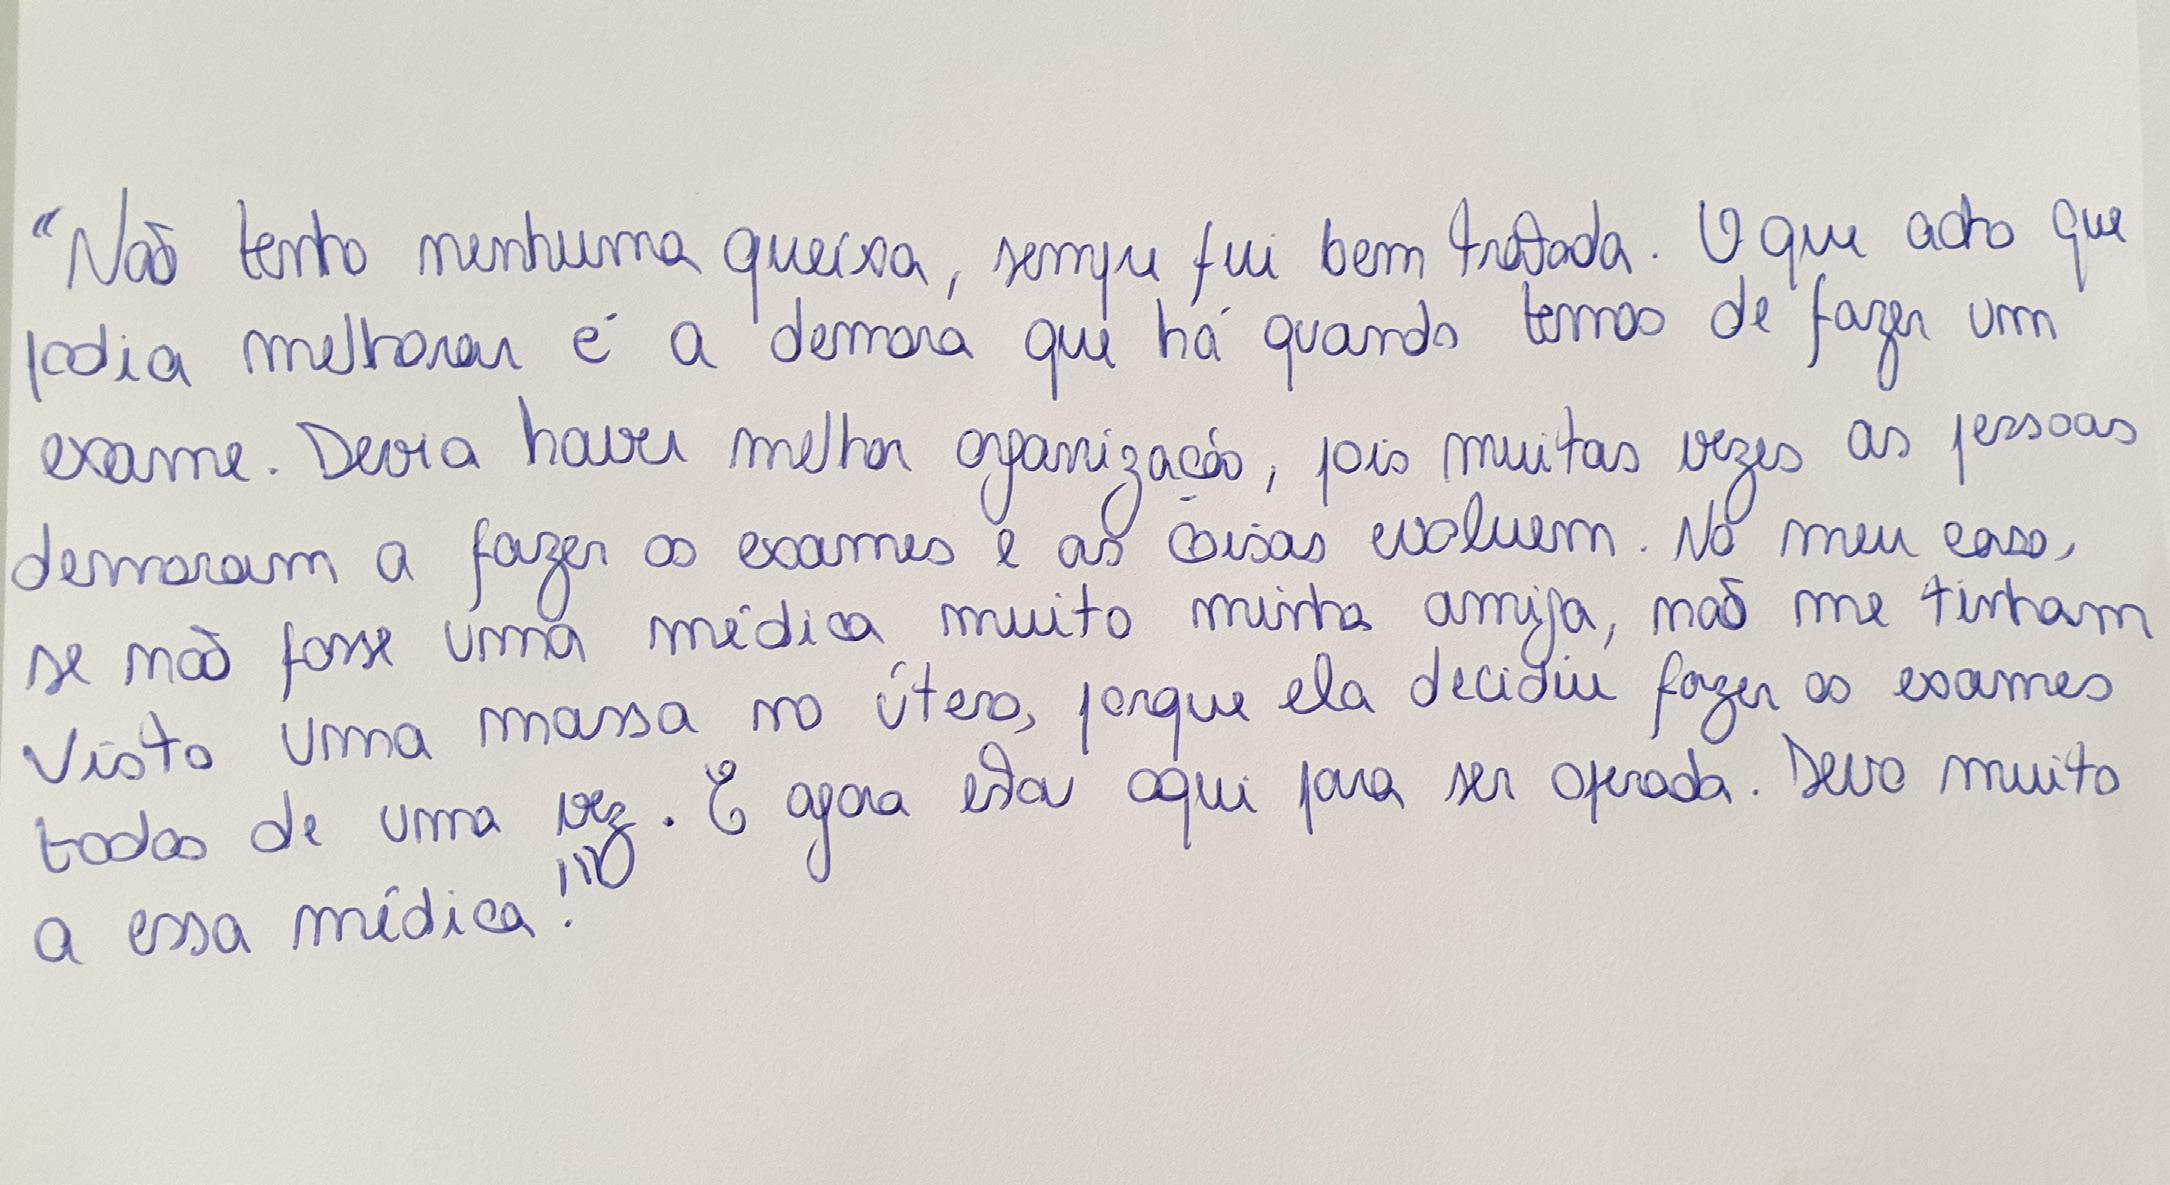 "Não tenho nenhuma queixa, sempre fui bem tratada. O que acho que
podia melhorar é a demora que há quando temos de fazer um
exame. Devia haver melhor organização, pois muitas vezes as pessoas
demoram a fazer os exames e as coisas evoluem. No meu caso,
se não fosse uma médica muito minha amiga, não me tinham
visto uma massa no útero, porque ela decidiu fazer os exames
todos de uma vez. E agora estou aqui para ser operada. Devo muito
a essa médica!"